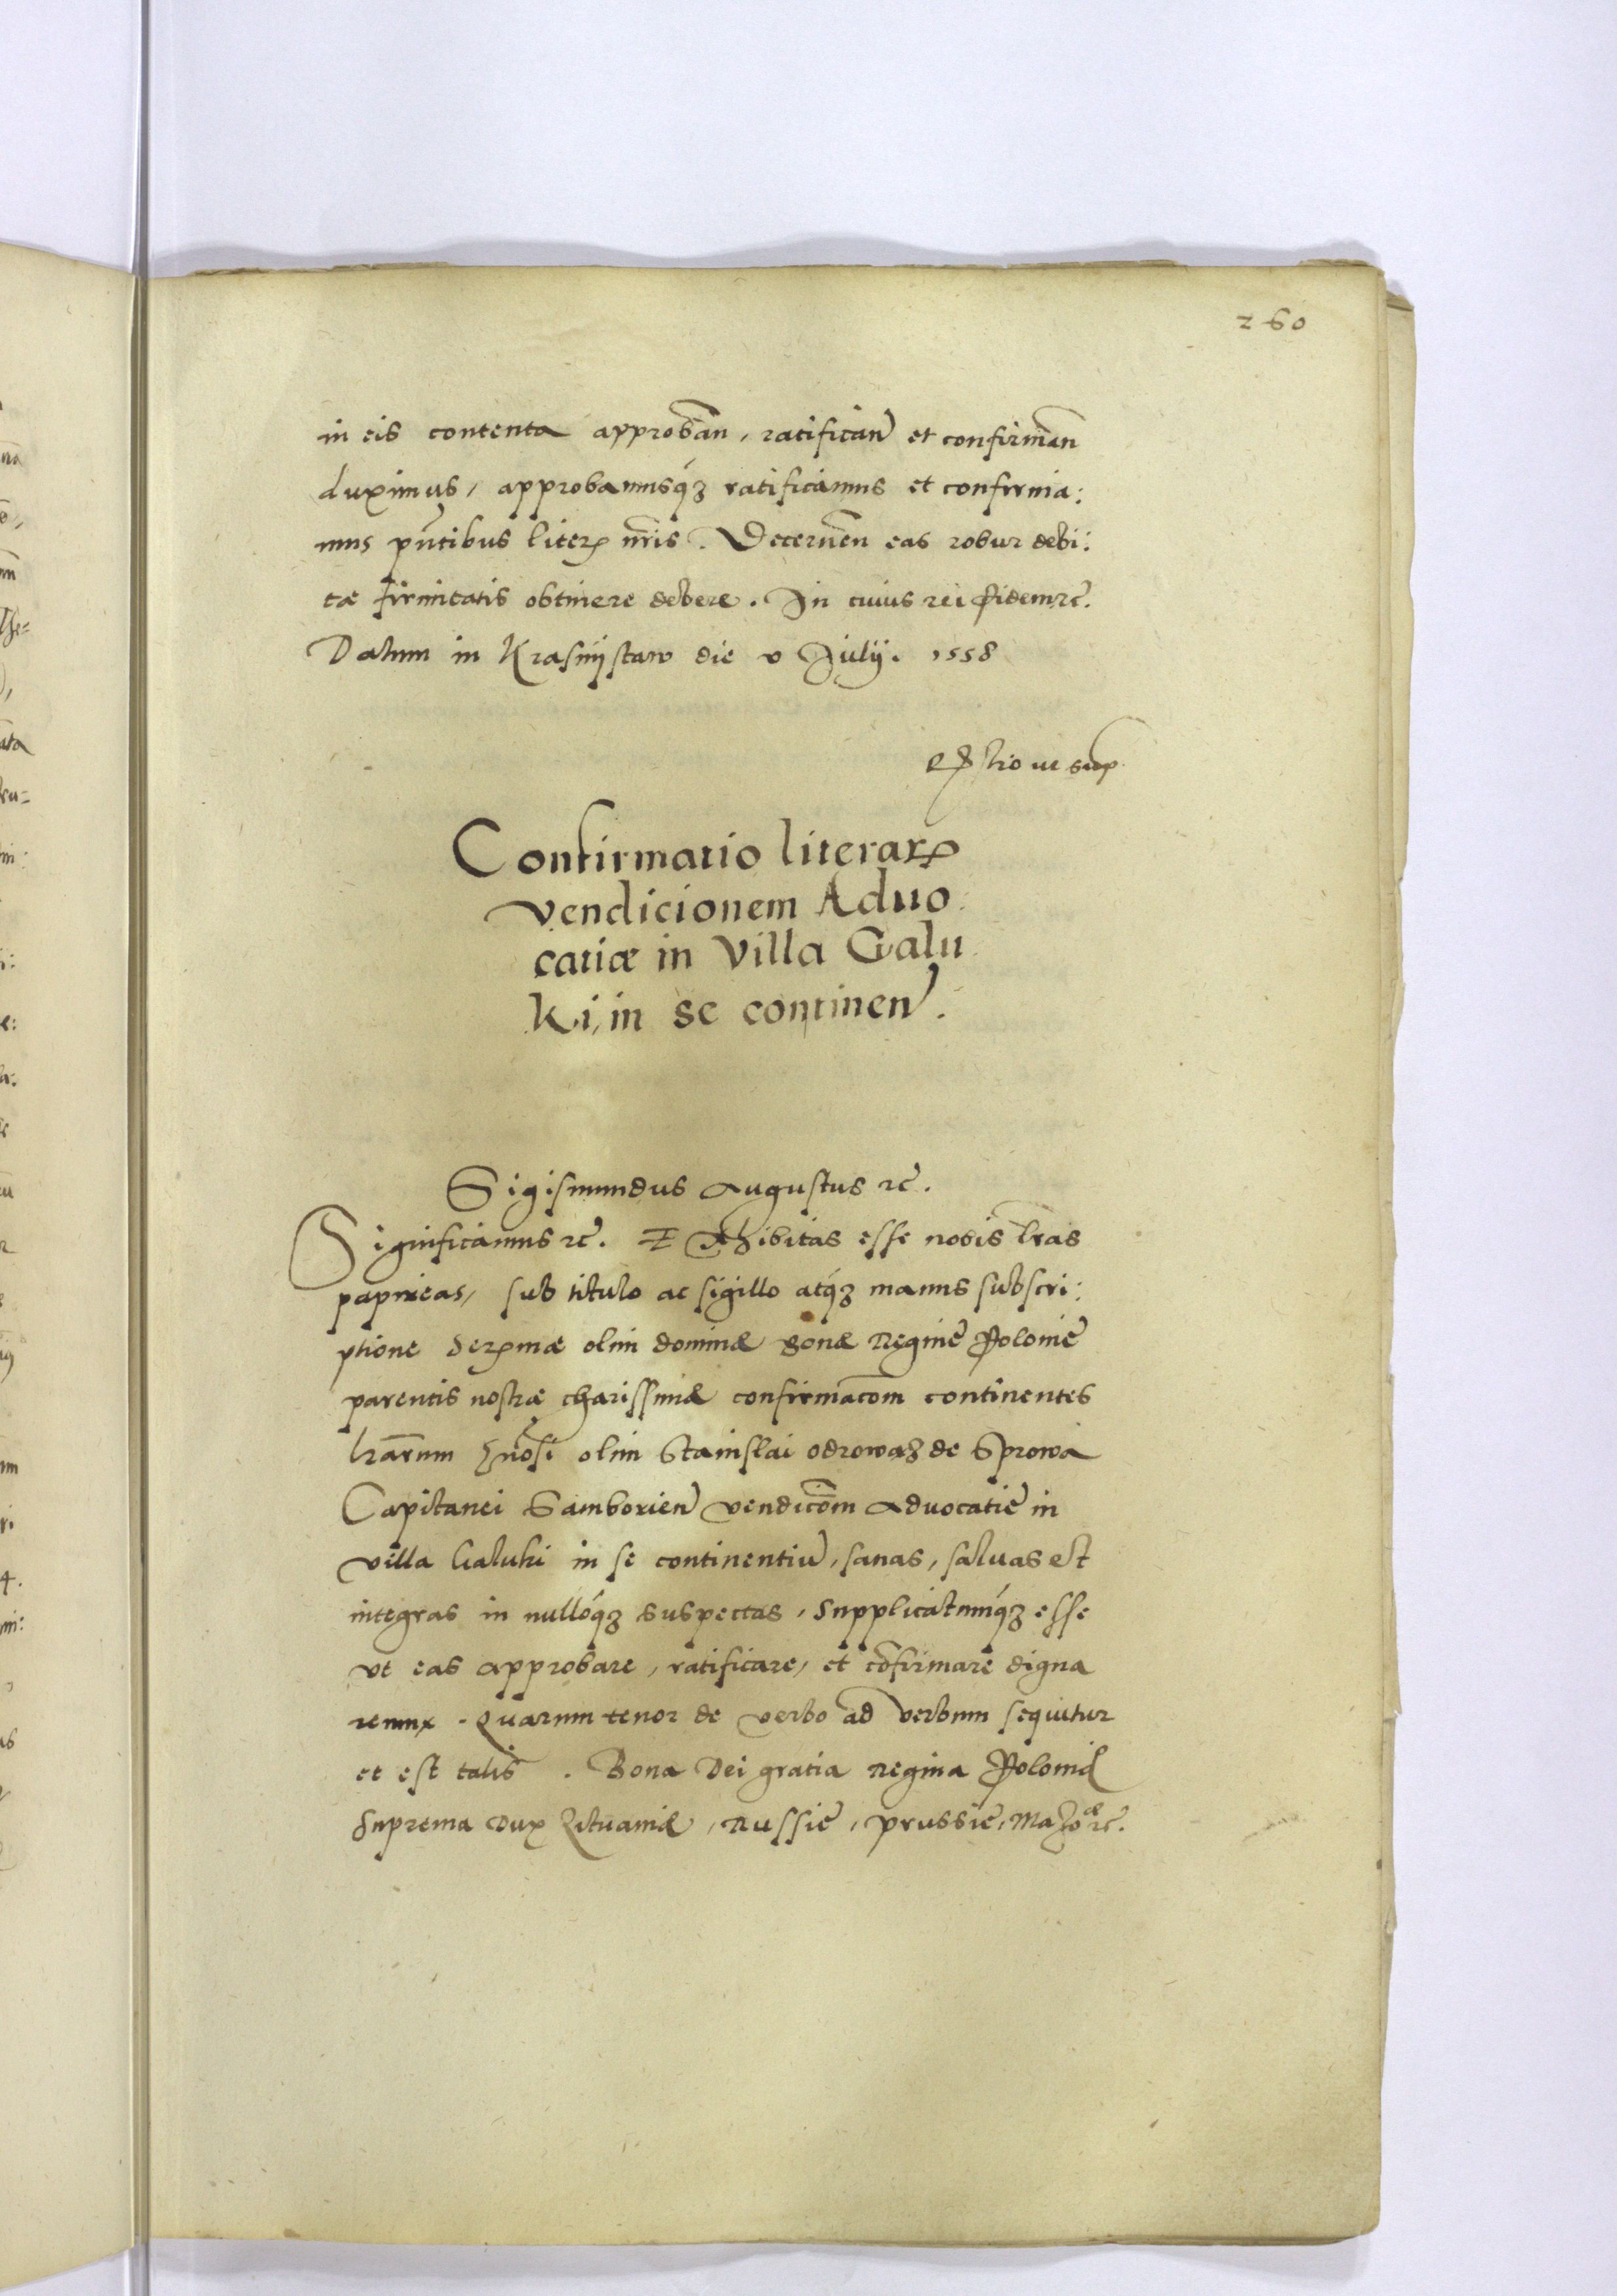 260
in eis contenta approban̄, ratifican̄ et confirman̄
duximus, approbamusq́ꝫ ratificamus et confirma:
mus pn̄tibus literꝭ nr̄is. Decernen̄ eas robur debi:
tæ firmitatis obtinere debere. In cuius rei fidem ꝛc̄.
Datum in Krasnijstaw die v Julij. 1558
ut sup
Confirmatio literarꝝ
vendicionem Aduo
catiæ in Villa Galu
ki, in se continen̄.
Sigismundus Augustus ꝛc̄.
Significamus ꝛc̄. Exhibitas esse nobis lr̄as
papireas, sub titulo ac sigillo atq́ꝫ manus subscri:
ptione Serꝭmæ olim dominæ Bonæ Reginę Polonię
parentis nostræ charissimæ confirmac̄om continentes
lr̄arum gn̄osi olim Stanislai Odrowąż de Sprowa
Capitanei Samborien̄ vendic̄om Advocatię in
villa Galuki in se continentiū, sanas, saluas et
integras in nulloq́ꝫ suspectas, Supplicatumq́ꝫ esse
vt eas approbare, ratificare, et cōfirmare digna
remur. Quarum tenor de verbo ad verbum sequitur
et est talis. Bona Dei gratia Regina Poloniæ
Suprema Dux Lituaniæ, Russię, Prussię, Mazoæ ꝛc̄.